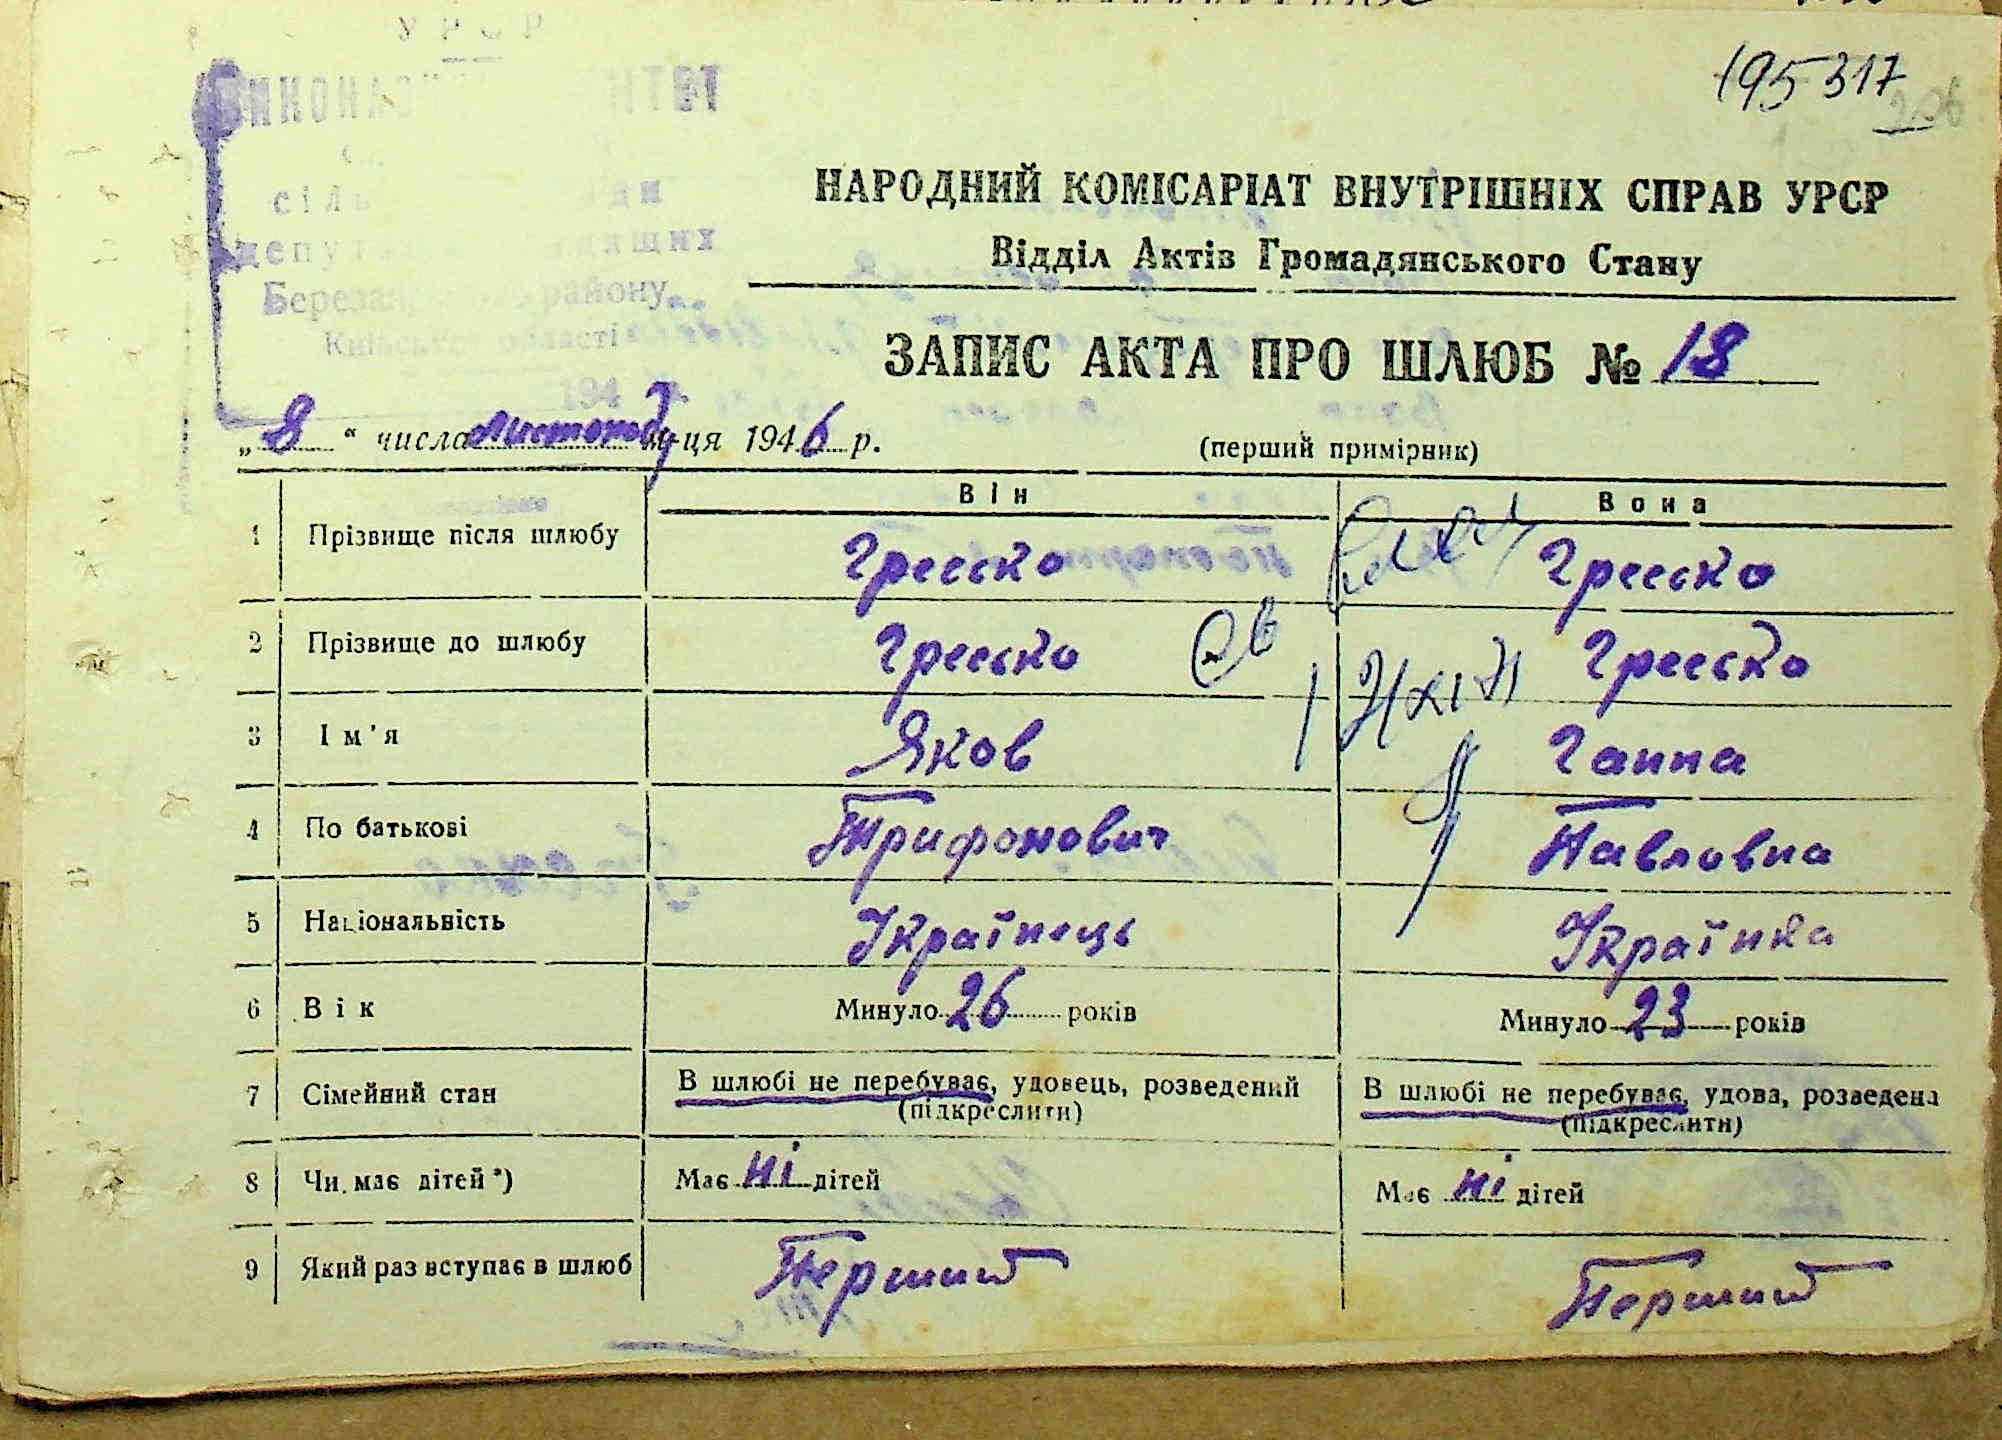 195 317
206
УРСР
сіль
Київської області
194
НАРОДНИЙ КОМІСАРІАТ ВНУТРІШНІХ СПРАВ УРСР
Відділ Актів Громадянського Стану
ЗАПИС АКТА ПРО ШЛЮБ № 18
„ 8 “ числа листопаду м-ця 1946 р.
(перший примірник)
Він Вона
1 Прізвище після шлюбу Гресько Гресько
2 Прізвище до шлюбу Гресько Гресько
3 Ім'я Яков Ганна
4 По батькові Трифонович Павловна
5 Національність Українець Українка
6 Вік Минуло 26 років Минуло 23 років
7 Сімейний стан В шлюбі не перебуває, удовець, розведений В шлюбі не перебуває, удова, розведена
(підкреслити) (підкреслити)
8 Чи має дітей*) Має ні дітей Має ні дітей
9 Який раз вступає в шлюб Перший Перший